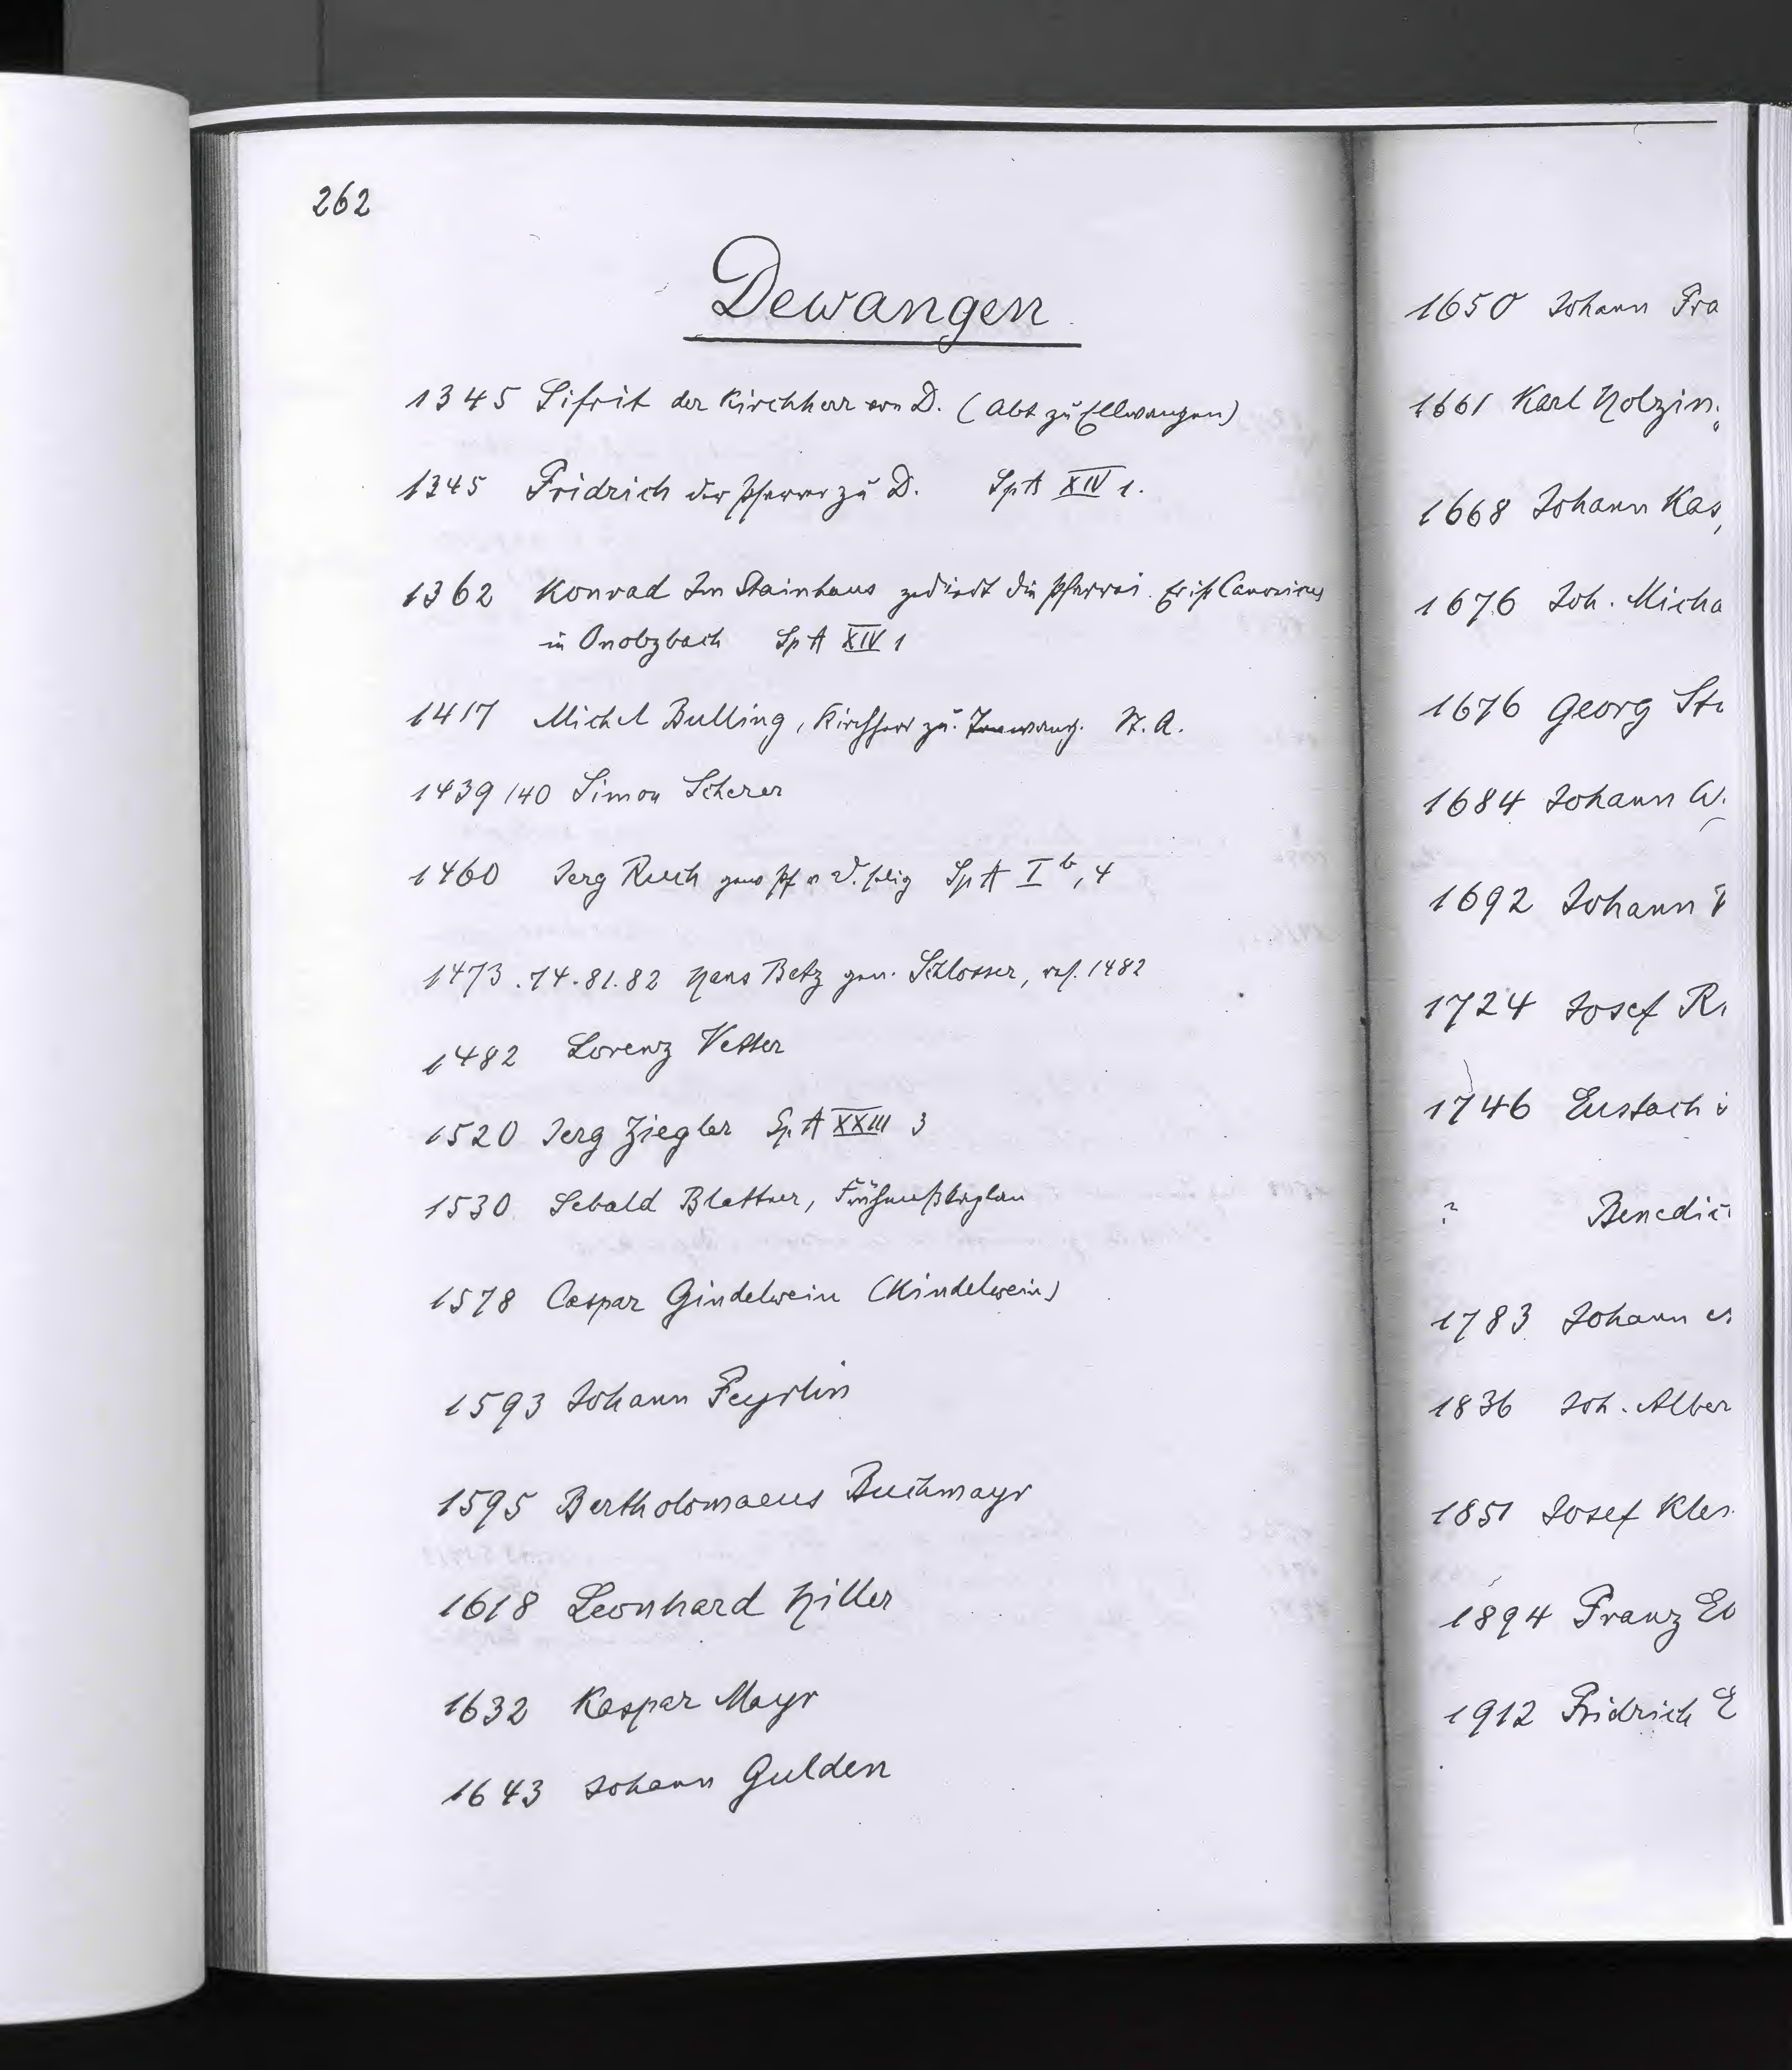 262
Dewangen
1345 Sifrit der Kirchherr von D. (Abt zu Ellwangen)
1345 Fridrich der Pfarrer zu D. Sp A XIV 1.
1362 Konrad Im Stainhaus die Pfarrei. Er ist Canonicus
in Onolzbach Sp A XIV 1
1417 Michel Bulling, Kirchherr zu N. A.
1439/40 Simon Scherer
1460 Jerg Ruch Sp A I b, 4
1473.74.81.82 Hans Betz gen. Schlosser, res. 1482
1482 Lorenz Vetter
1520 Jerg Ziegler Sp. A XXIII 3
1530 Sebald Blattner, Frühmeßkaplan
1578 Caspar Gindelwein (Kindelwein)
1593 Johann Feyrlin
1595 Bertholomaeus Buchmayr
1618 Leonhard Hiller
1632 Kaspar Mayr
1643 Johann Gulden
1650 Johann Fra
1661 Karl Holzin
1668 Johann Kas
1676 Joh. Micha
1676 Georg St
1684 Johann
1692 Johann
1724 Josef R
1746 Eustach
? Benedi
1783 Johann
1836 Joh. Alber
1851 Josef Kle
1894 Franz
1912 Fridrich E